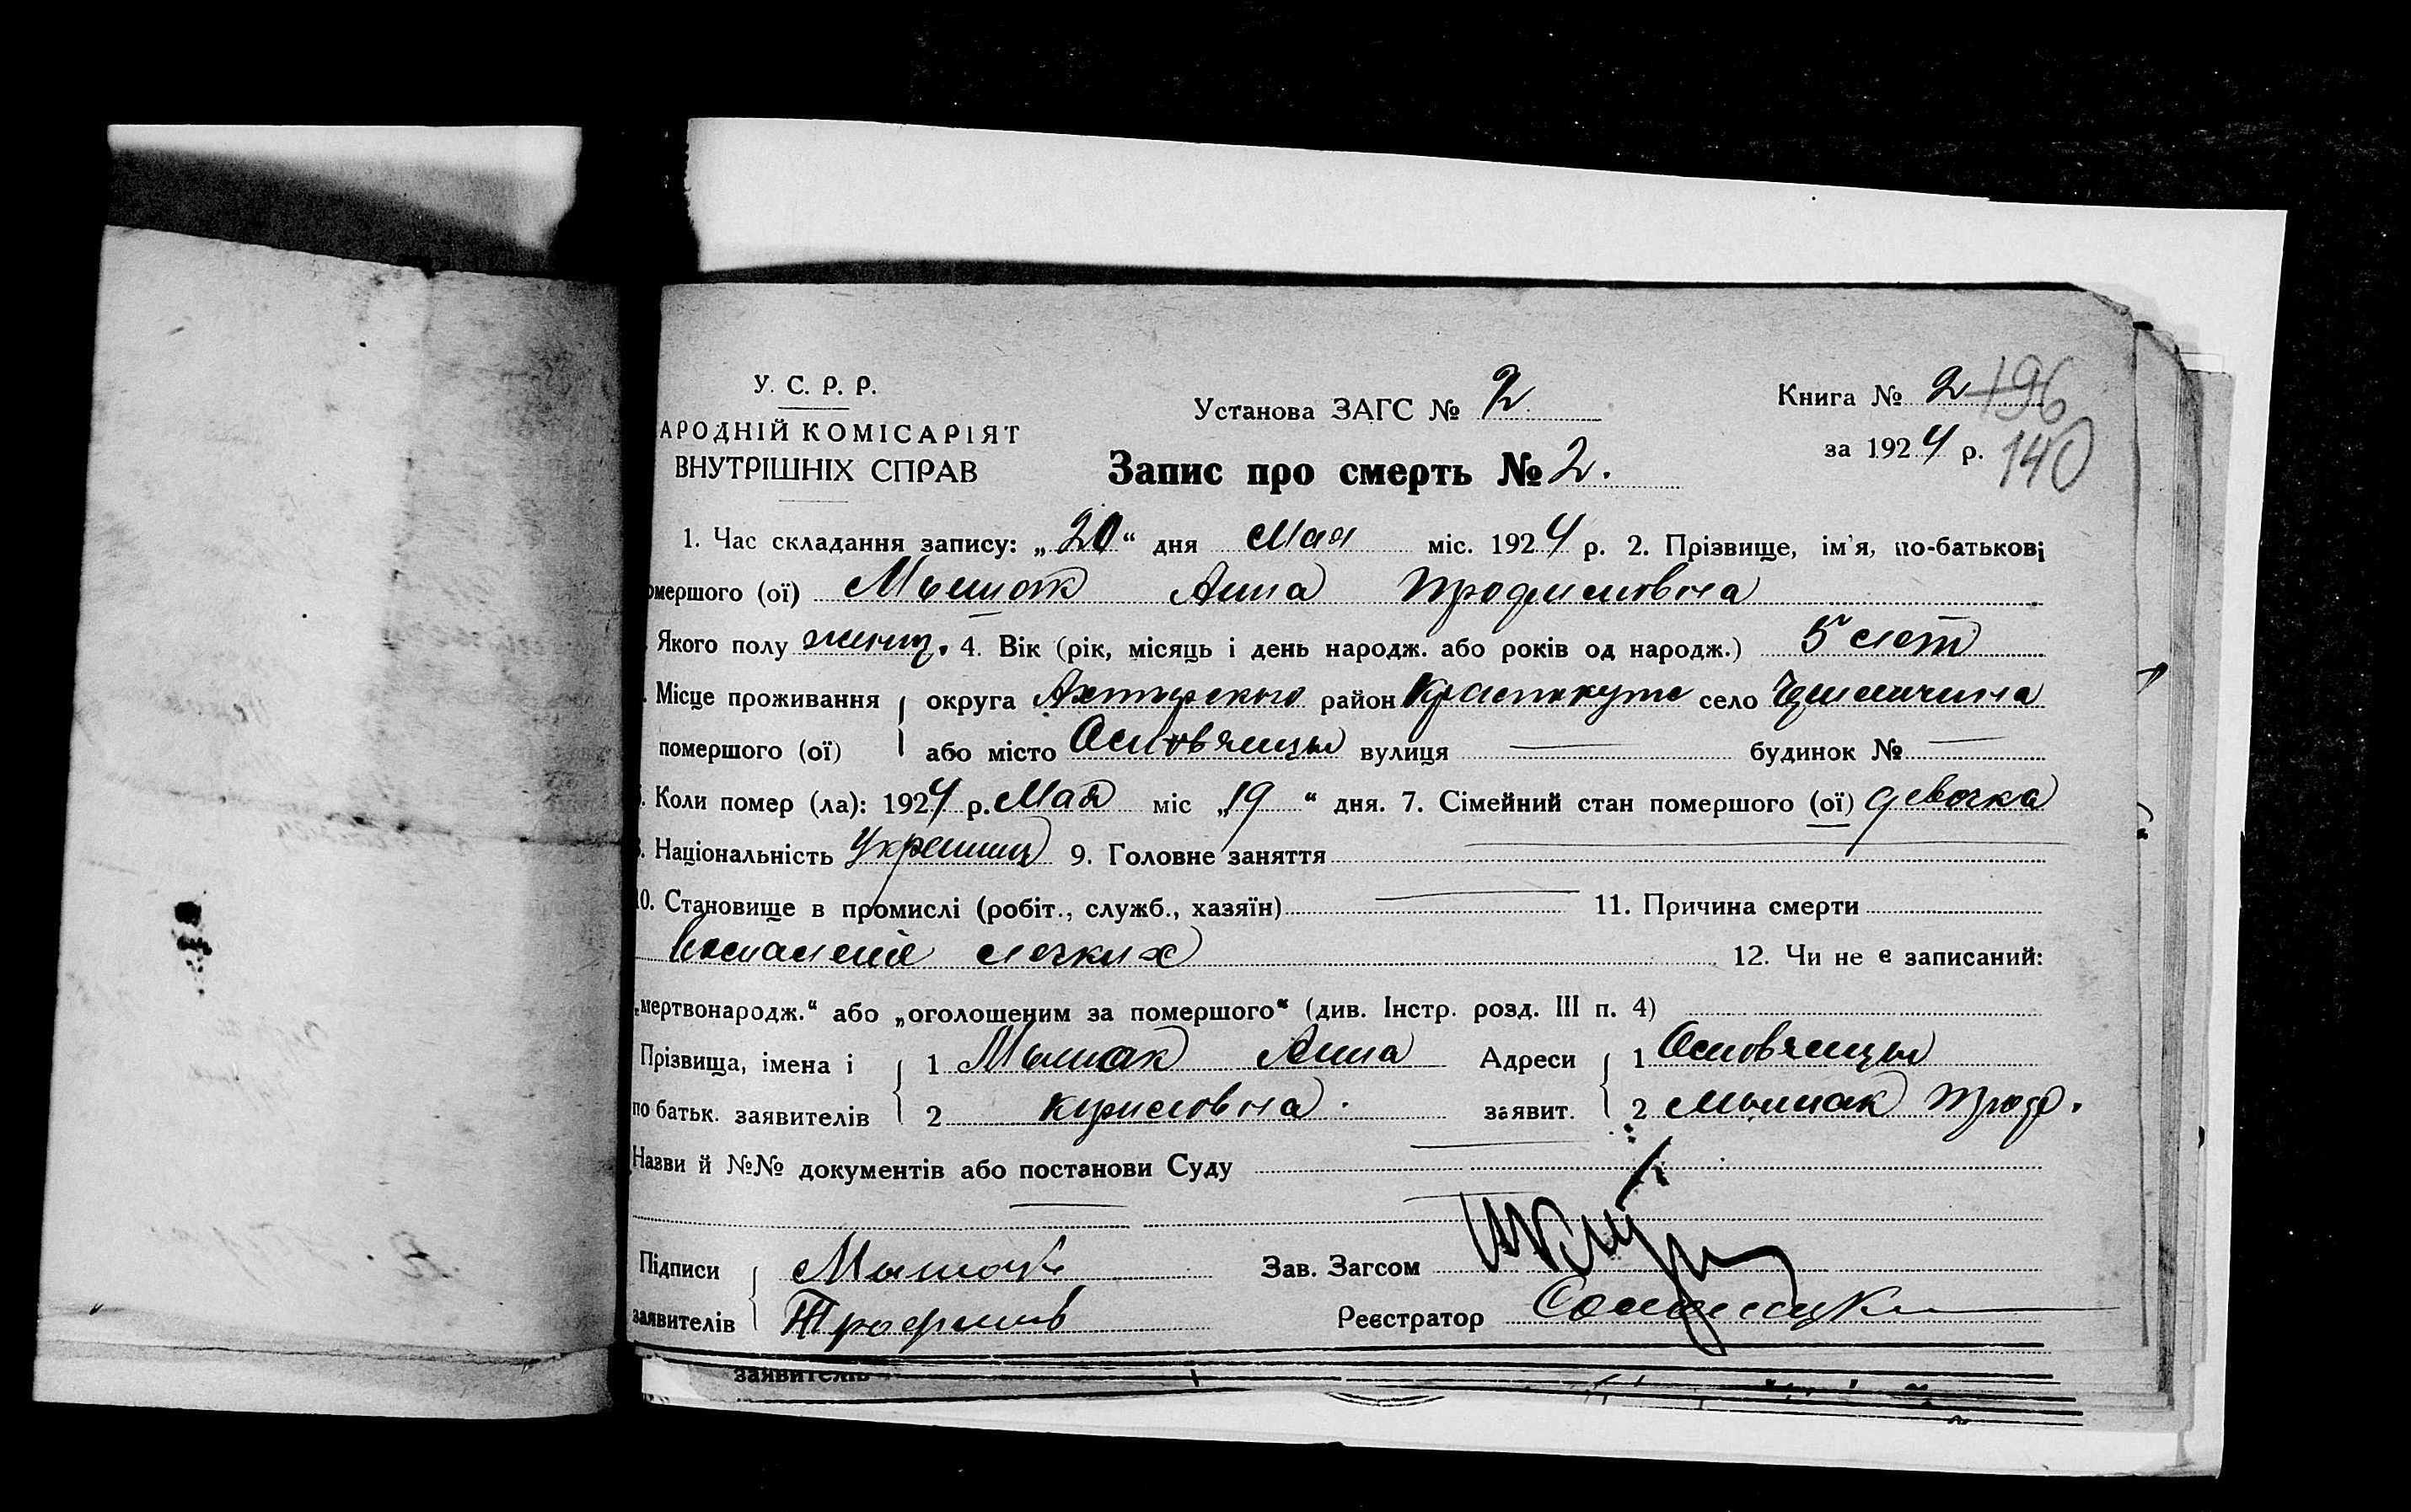 У. С. Р. Р.
АРОДНІЙ КОМІСАРІЯТ
ВНУТРІШНІХ СПРАВ
Установа ЗАГС № 2
Книга № 2 196
за 1924 р. 140
Запис про смерть № 2.
1. Час складання запису: „20“ дня Мая міс. 1924 р. 2. Прізвище, ім'я, по-батькові
омершого (ої) Мышак Анна Трофимовна
Якого полу женщ. 4. Вік (рік, місяць і день народж. або років од народж.) 5 лет
Місце проживання округа Ахтырского район Краснокутс село
помершого (ої) або місто Основянцы вулиця — будинок № —
Коли помер (ла): 1924 р. Мая міс „19“ дня. 7. Сімейний стан помершого (ої) девочка
Національність Украинц 9. Головне заняття —
10. Становище в промислі (робіт., служб., хазяїн) — 11. Причина смерти
Воспаление легких 12. Чи не є записаний:
„мертвонародж.“ або „оголошеним за помершого“ (див. Інстр. розд. III п. 4)
Прізвища, імена і 1 Мышак Анна Адреси 1 Основянцы
по батьк. заявителів 2 Кириловна. заявит. 2 Мышак Троф.
Назви й №№ документів або постанови Суду —
Підписи Мышак Зав. Загсом
заявителів Трофим Реєстратор
заявителів